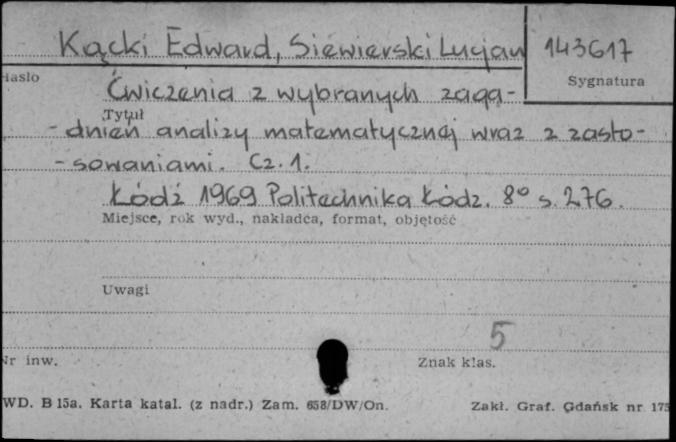 Kącki Edward, Siewierski Lucjan 143617
Hasło Sygnatura
Ćwiczenia z wybranych zaga-
Tytuł
-dnień analizy matematycznej wraz z zasto-
-sowaniami. Cz. 1.
Łódź 1969 Politechnika Łódz. 8° s. 276.
Miejsce, rok wyd., nakładca, format, objętość
Uwagi
5
Nr inw. Znak klas.
WD. B 15a. Karta katal. (z nadr.) Zam. 658/DW/On. Zakł. Graf. Gdańsk nr 175